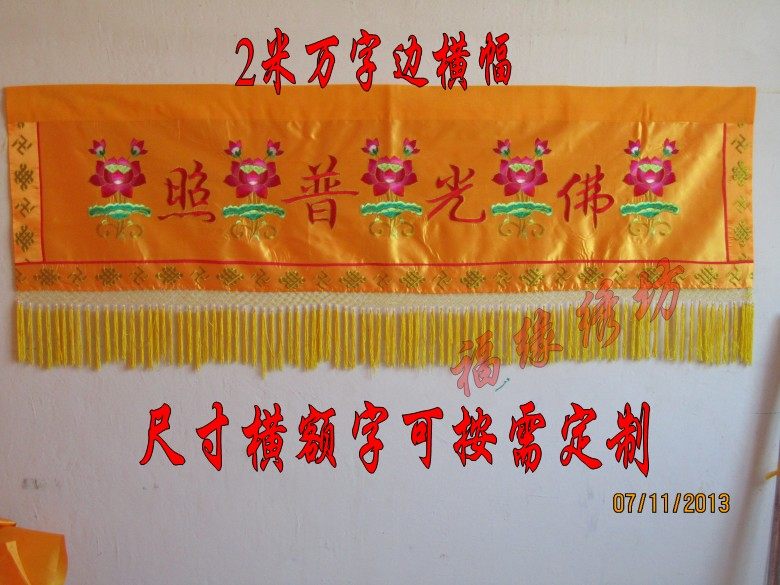 2米万字边横幅
佛光普照
福缘绣坊
尺寸横额字可按需定制
07/11/2013